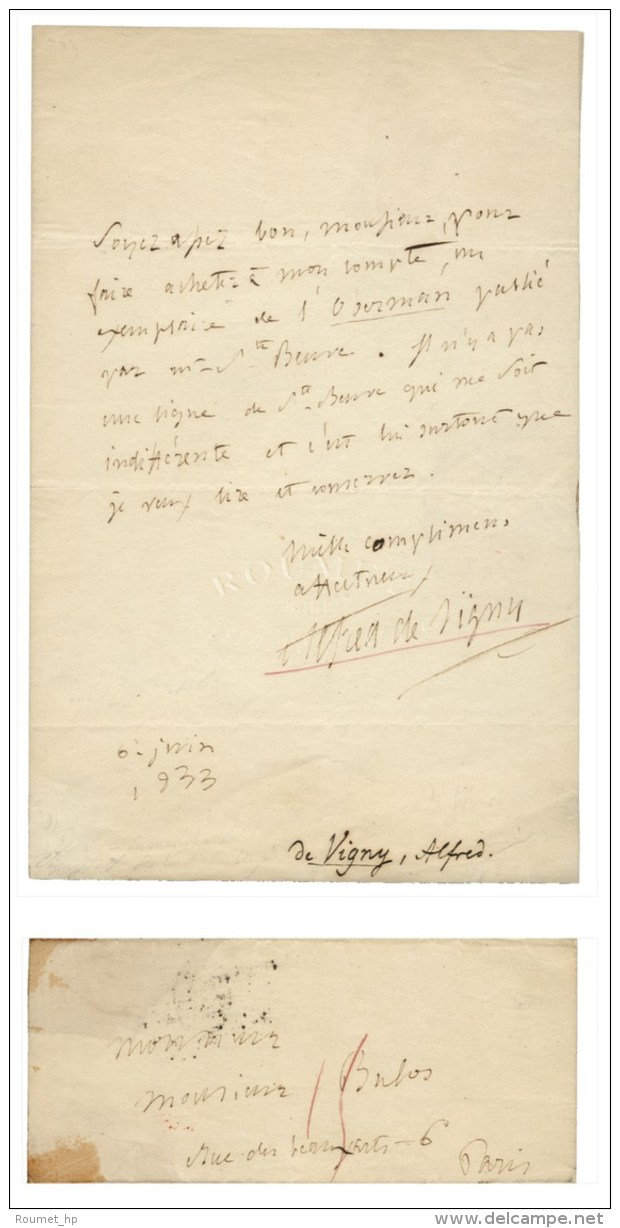 Soyez assez bon, monsieur, pour
faire acheter à mon compte, un
exemplaire de l'Oberman publié
par mr. Ste Beuve. Il n'y a pas
une ligne de Ste. Beuve qui me soit
indifférente et c'est lui surtout que
je veux lire et conserver.
Mille complimens
affectueux
Alfred de Vigny
6 juin
1833
de Vigny, Alfred.
Monsieur
Monsieur Bulos
Rue des beaux arts - 6
Paris
15
Roumet_hp
www.delcampe.net